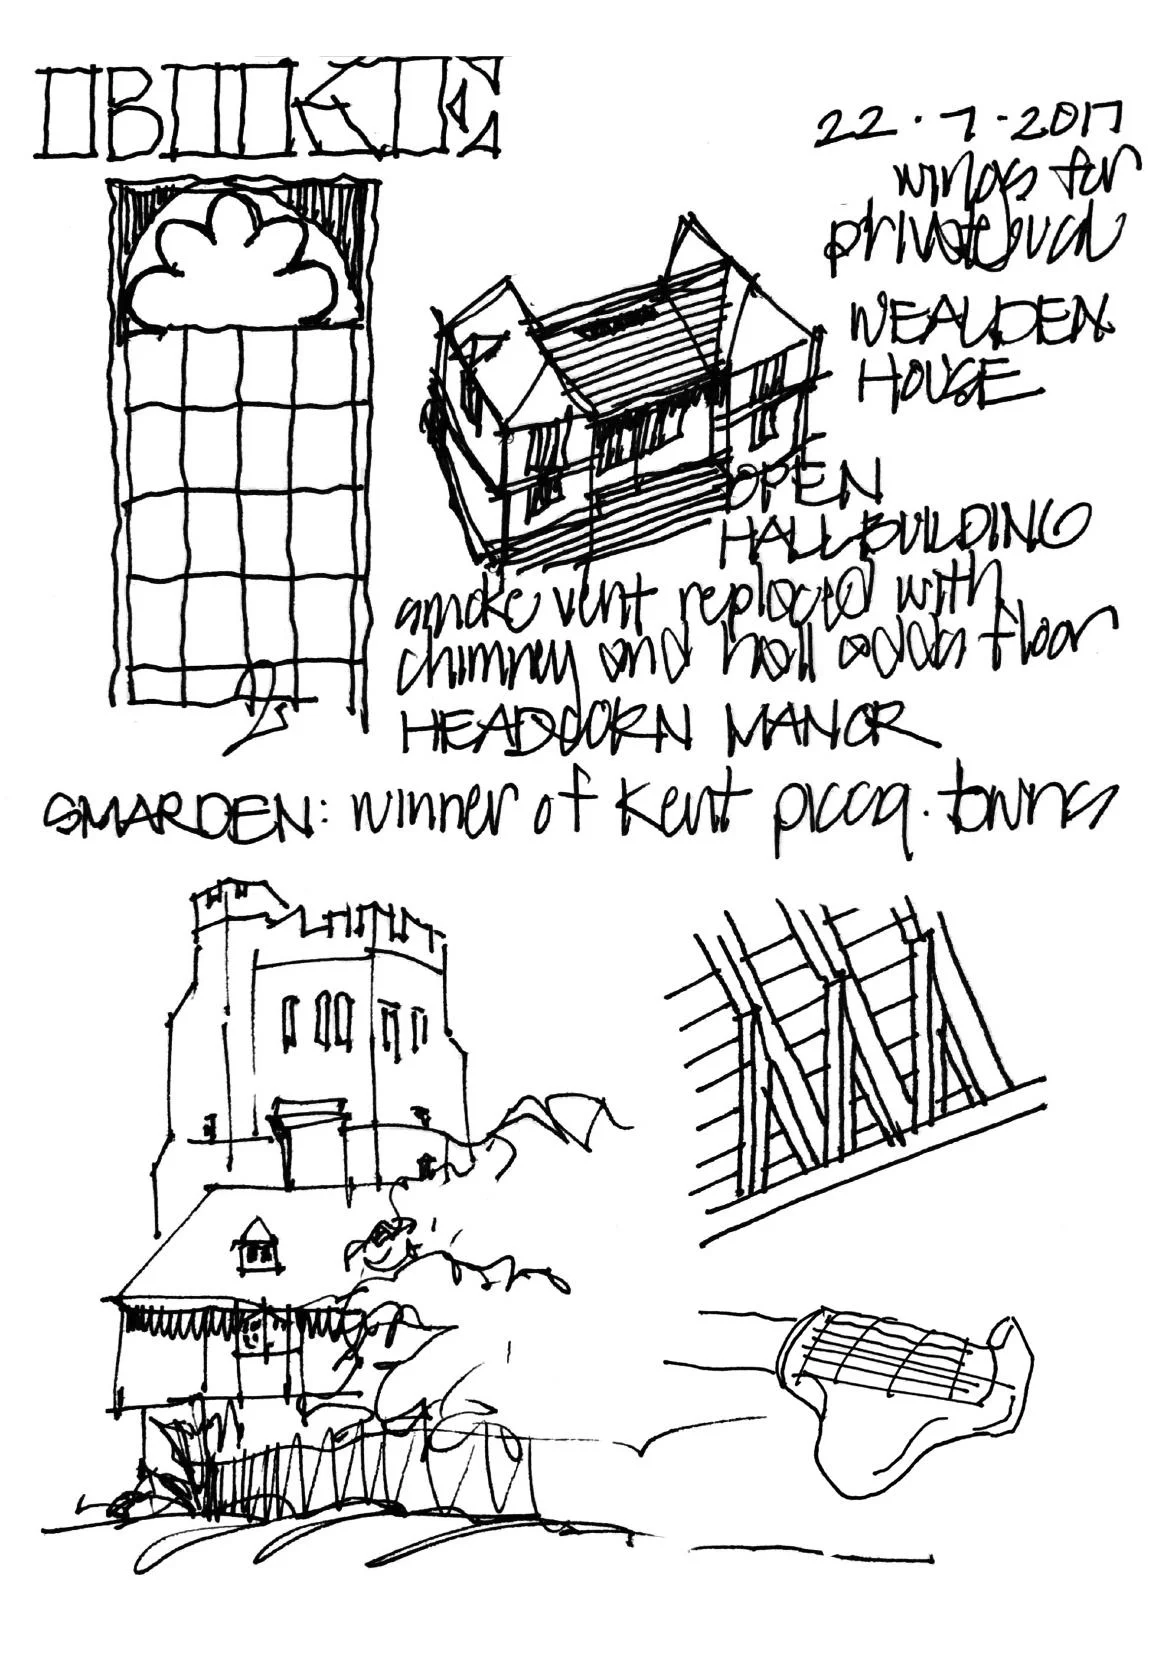 22.7.2017
wings for
private
WEALDEN
HOUSE
OPEN
HALL BUILDING
smoke vent replaced with
chimney and hall adds floor
HEADCORN MANOR
SMARDEN: winner of Kent towns